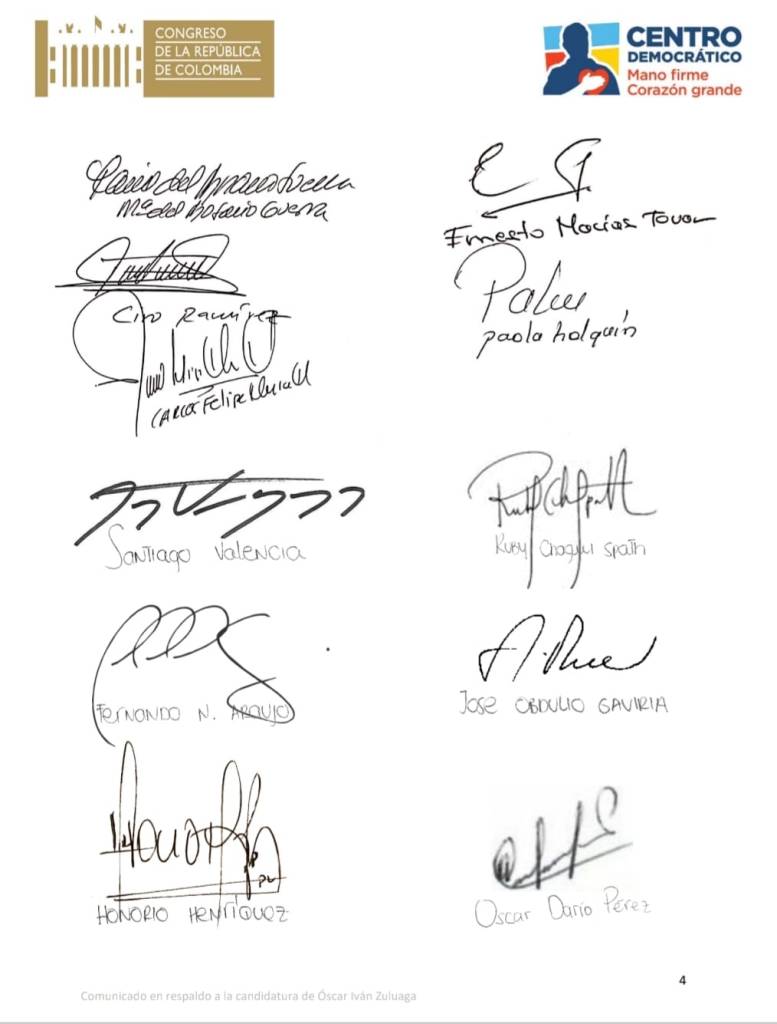 CONGRESO
DE LA REPÚBLICA
DE COLOMBIA
CENTRO
DEMOCRÁTICO
Mano firme
Corazón grande
Ma del Rosario Guerra
Ernesto Macías Tovar
Ciro Ramírez
Paola
paola holguín
Carlos Felipe
Santiago Valencia
Ruby Chagui Spath
Fernando N. Araujo
Jose Obdulio Gaviria
Honorio Henríquez
Oscar Darío Pérez
4
Comunicado en respaldo a la candidatura de Óscar Iván Zuluaga